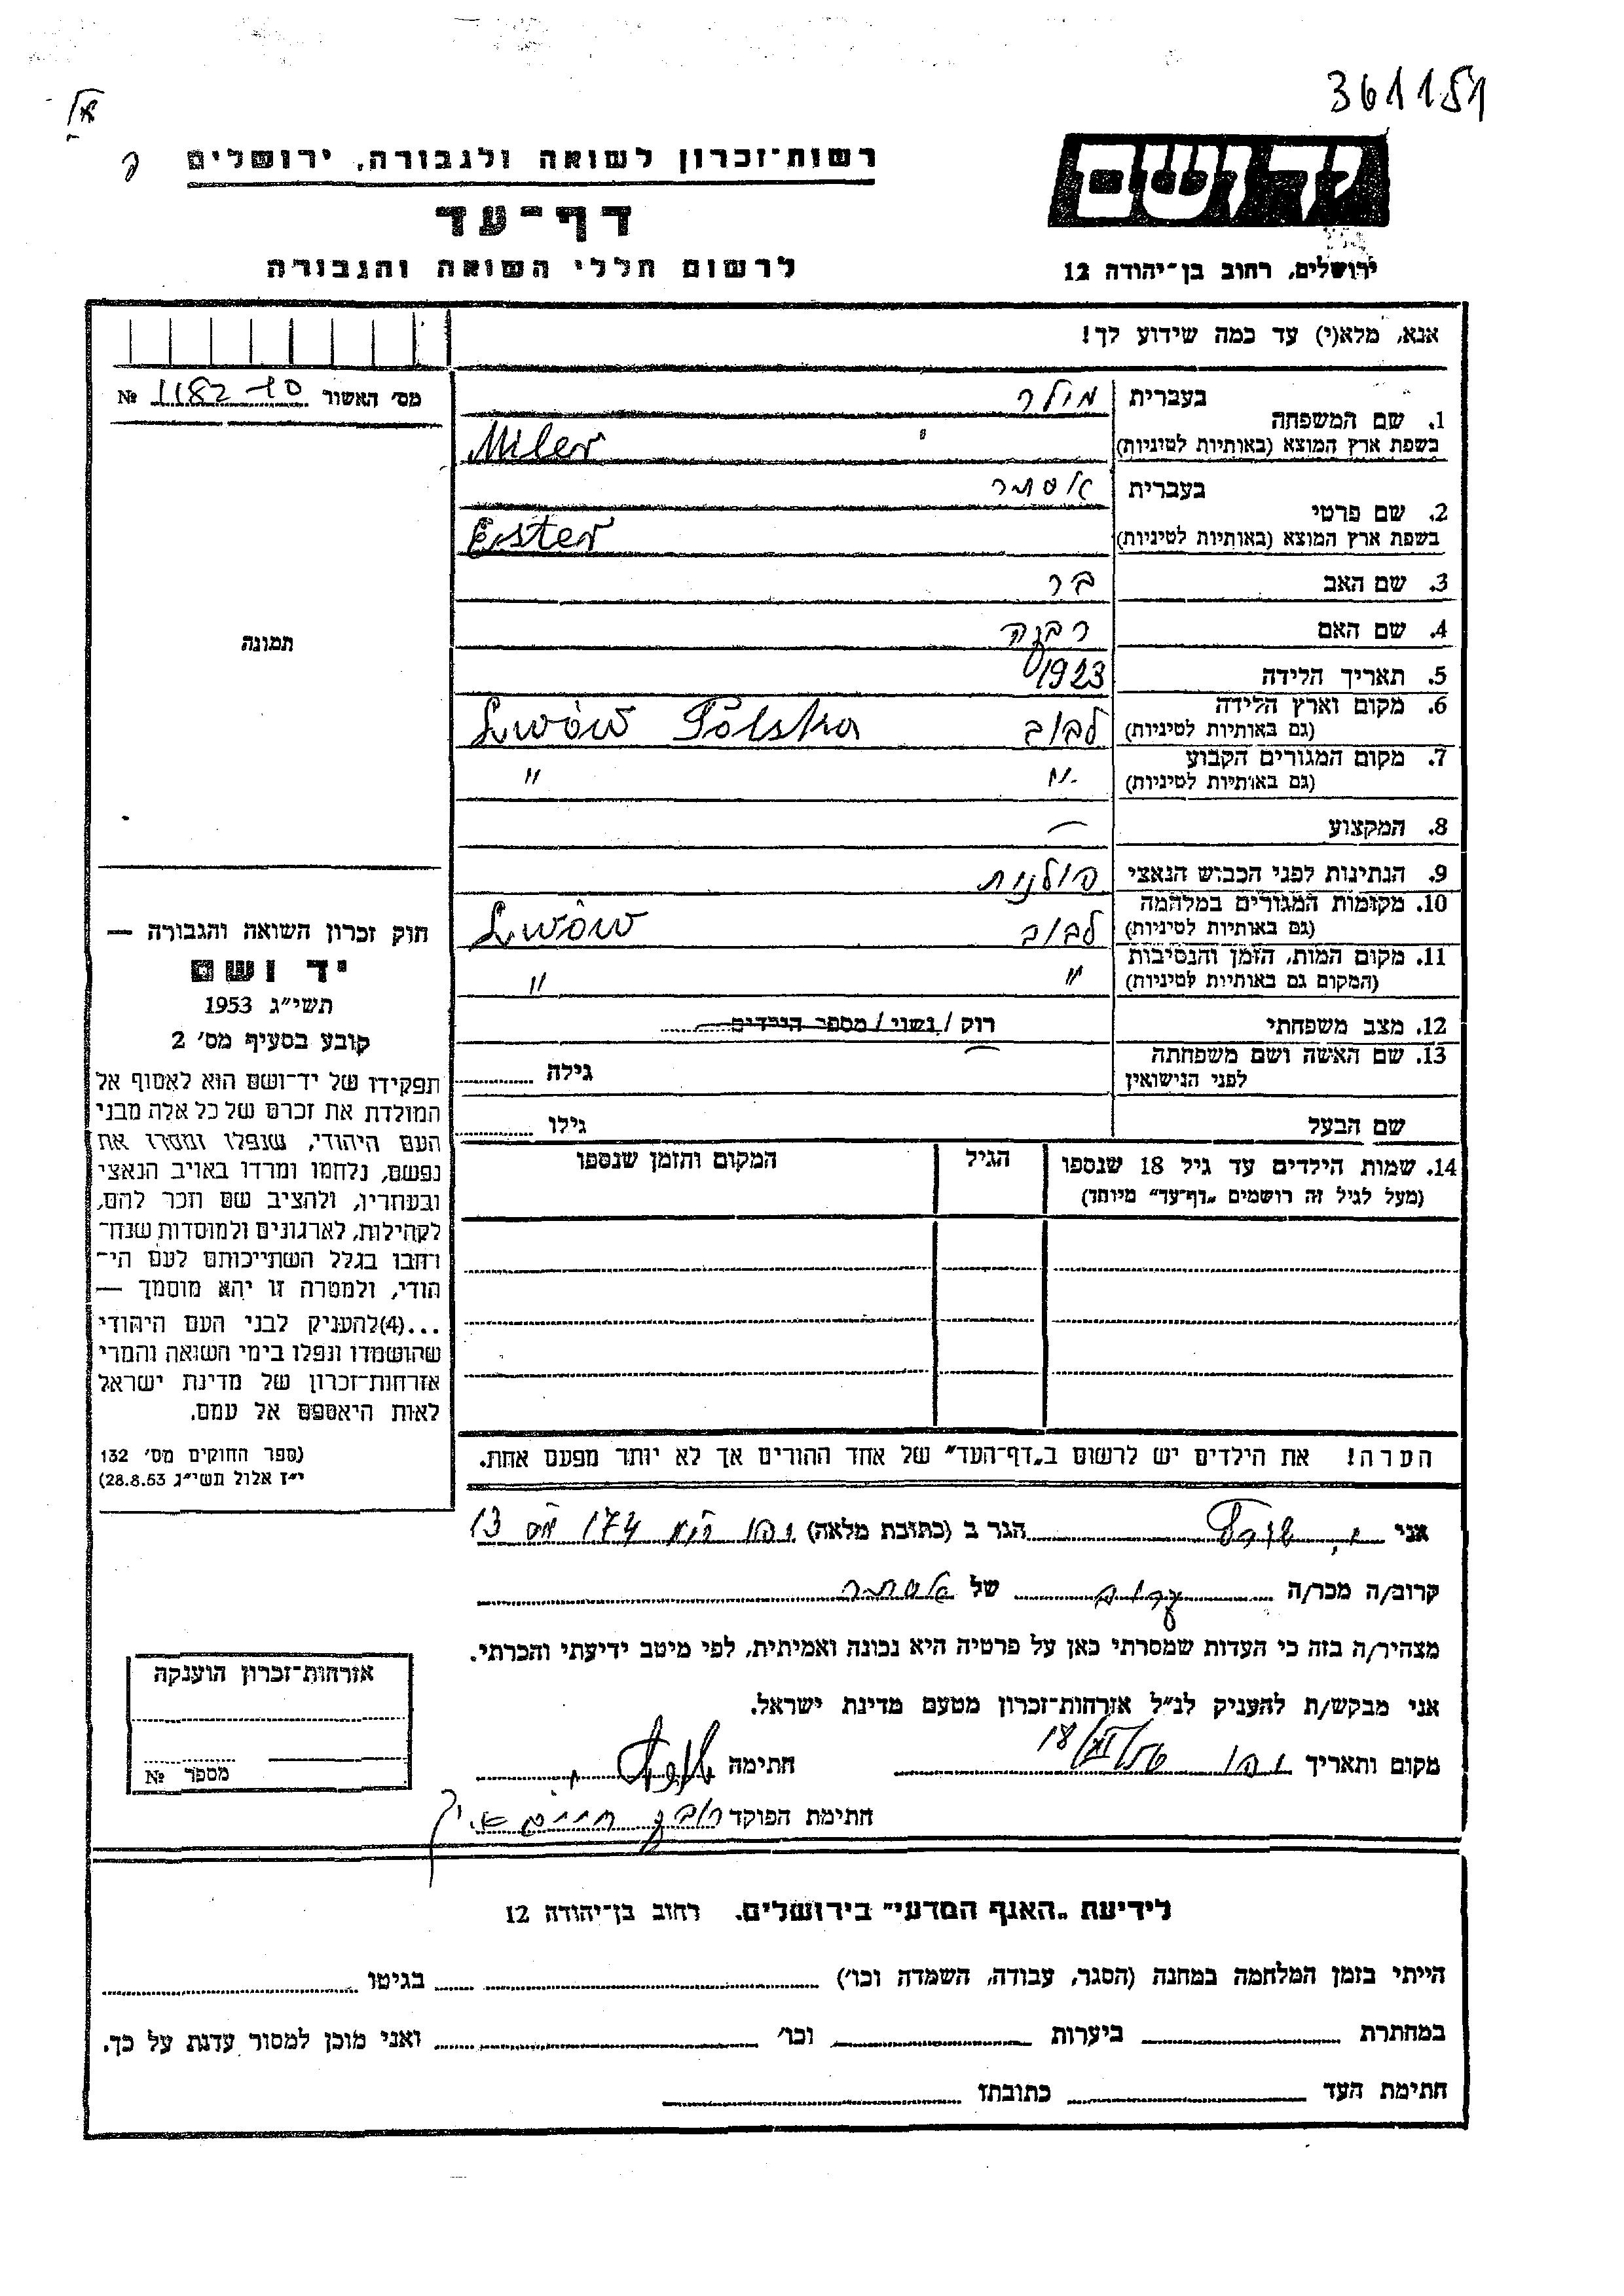 361151
יד ושם
רשות־זכרון לשואה ולגבורה, ירושלים
דף־עד
לרשום חללי השואה והגבורה
ירושלים, רחוב בן־יהודה 12
אנא, מלא(י) עד כמה שידוע לך!
מס׳ האשור 1182-10 №
תמונה
חוק זכרון השואה והגבורה —
יד ושם
תשי״ג 1953
קובע בסעיף מס׳ 2
תפקידו של יד־ושם הוא לאסוף אל
המולדת את זכרם של כל אלה מבני
העם היהודי, שנפלו ומסרו את
נפשם, נלחמו ומרדו באויב הנאצי
ובעוזריו, ולהציב שם וזכר להם,
לקהילות, לארגונים ולמוסדות שנח־
רחבו בגלל השתייכותם לעם הי־
הודי, ולמטרה זו יהא מוסמך —
...(4)להעניק לבני העם היהודי
שהושמדו ונפלו בימי השואה והמרי
אזרחות־זכרון של מדינת ישראל
לאות היאספם אל עמם.
(ספר החוקים מס׳ 132
י״ז אלול תשי״ג 28.8.53)
בעברית מולר
1. שם המשפחה
בשפת ארץ המוצא (באותיות לטיניות) Miler
בעברית אסתר
2. שם פרטי
בשפת ארץ המוצא (באותיות לטיניות) Ester
3. שם האב בר
4. שם האם רבקה
5. תאריך הלידה 1923
6. מקום וארץ הלידה לבוב Lwów Polska
(גם באותיות לטיניות)
7. מקום המגורים הקבוע
(גם באותיות לטיניות) -״- ״
8. המקצוע —
9. הנתינות לפני הכבוש הנאצי פולנית
10. מקומות המגורים במלחמה
(גם באותיות לטיניות) לבוב Lwów
11. מקום המות, הזמן והנסיבות
(המקום גם באותיות לטיניות) ״ ״
12. מצב משפחתי רוק / נשוי / מספר הילדים
13. שם האשה ושם משפחתה — גילה
לפני הנישואין
שם הבעל גילו
14. שמות הילדים עד גיל 18 שנספו הגיל המקום והזמן שנספו
(מעל לגיל זה רושמים „דף־עד״ מיוחד)
הערה! את הילדים יש לרשום ב„דף־העד״ של אחד ההורים אך לא יותר מפעם אחת.
אני הגר ב (כתובת מלאה) 174 13
קרוב/ה מכר/ה של אסתר
מצהיר/ה בזה כי העדות שמסרתי כאן על פרטיה היא נכונה ואמיתית, לפי מיטב ידיעתי והכרתי.
אני מבקש/ת להעניק לנ״ל אזרחות־זכרון מטעם מדינת ישראל.
מקום ותאריך חתימה
חתימת הפוקד
אזרחות־זכרון הוענקה
מספר №
לידיעת „האגף המדעי״ בירושלים. רחוב בן־יהודה 12
הייתי בזמן המלחמה במחנה (הסגר, עבודה, השמדה וכו׳) בגיטו
במחתרת ביערות וכו׳ ואני מוכן למסור עדות על כך.
חתימת העד כתובתו